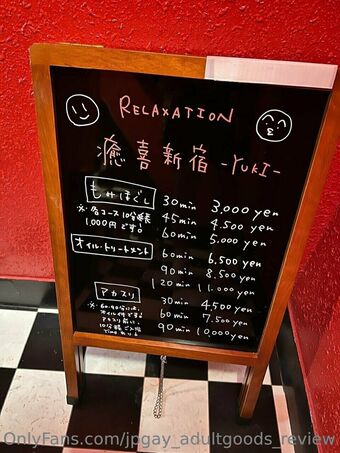 RELAXATION
癒喜新宿 -YUKI-
もみほぐし
30min 3,000 yen
※各コース10分延長
1,000円です!
45min 4,500 yen
60min 5,000 yen
オイルトリートメント
60min 6,500 yen
90min 8,500 yen
120min 11,000 yen
アカスリ
30min 4,500 yen
※60.90分には、
60min 7,500 yen
アカスリ
90min 10,000 yen
OnlyFans.com/jpgay_adultgoods_review